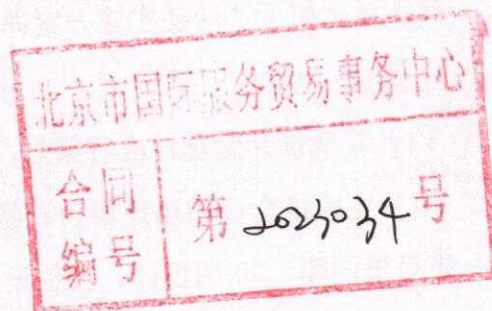 北京市国际服务贸易事务中心
合同
编号
第2023034号